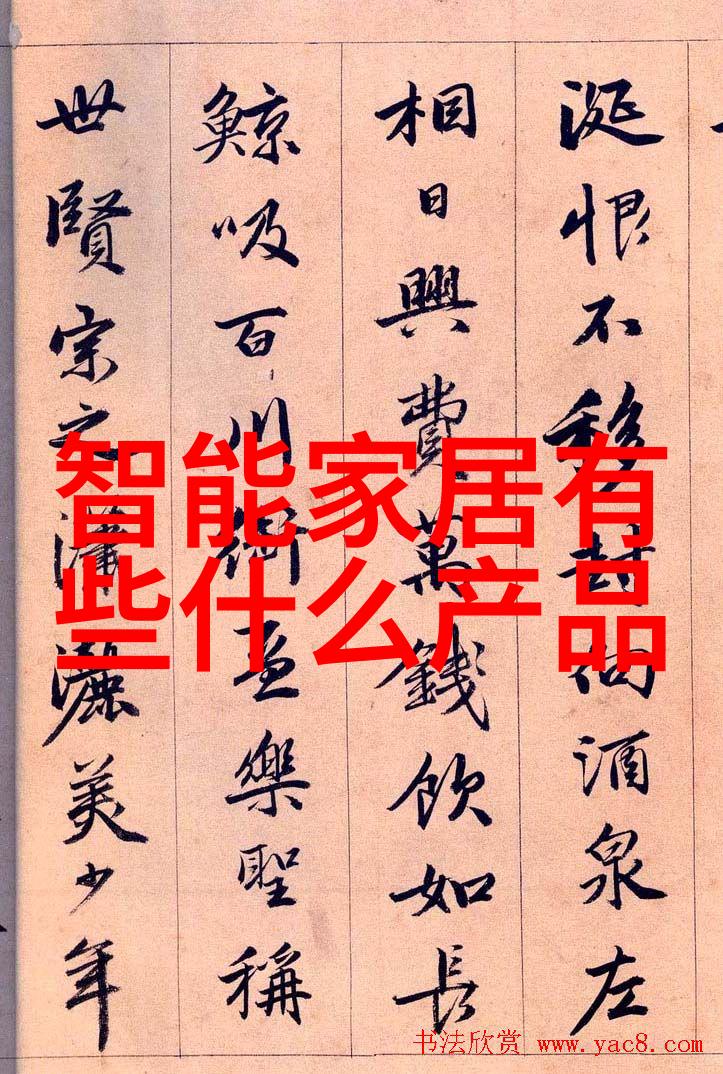 涎恨不移封向酒泉左
相日興費萬錢飲如長
鯨吸百川銜盃樂聖稱
世賢宗之瀟灑美少年
智能家居有
些什么产品
书法欣赏 www.yac8.com